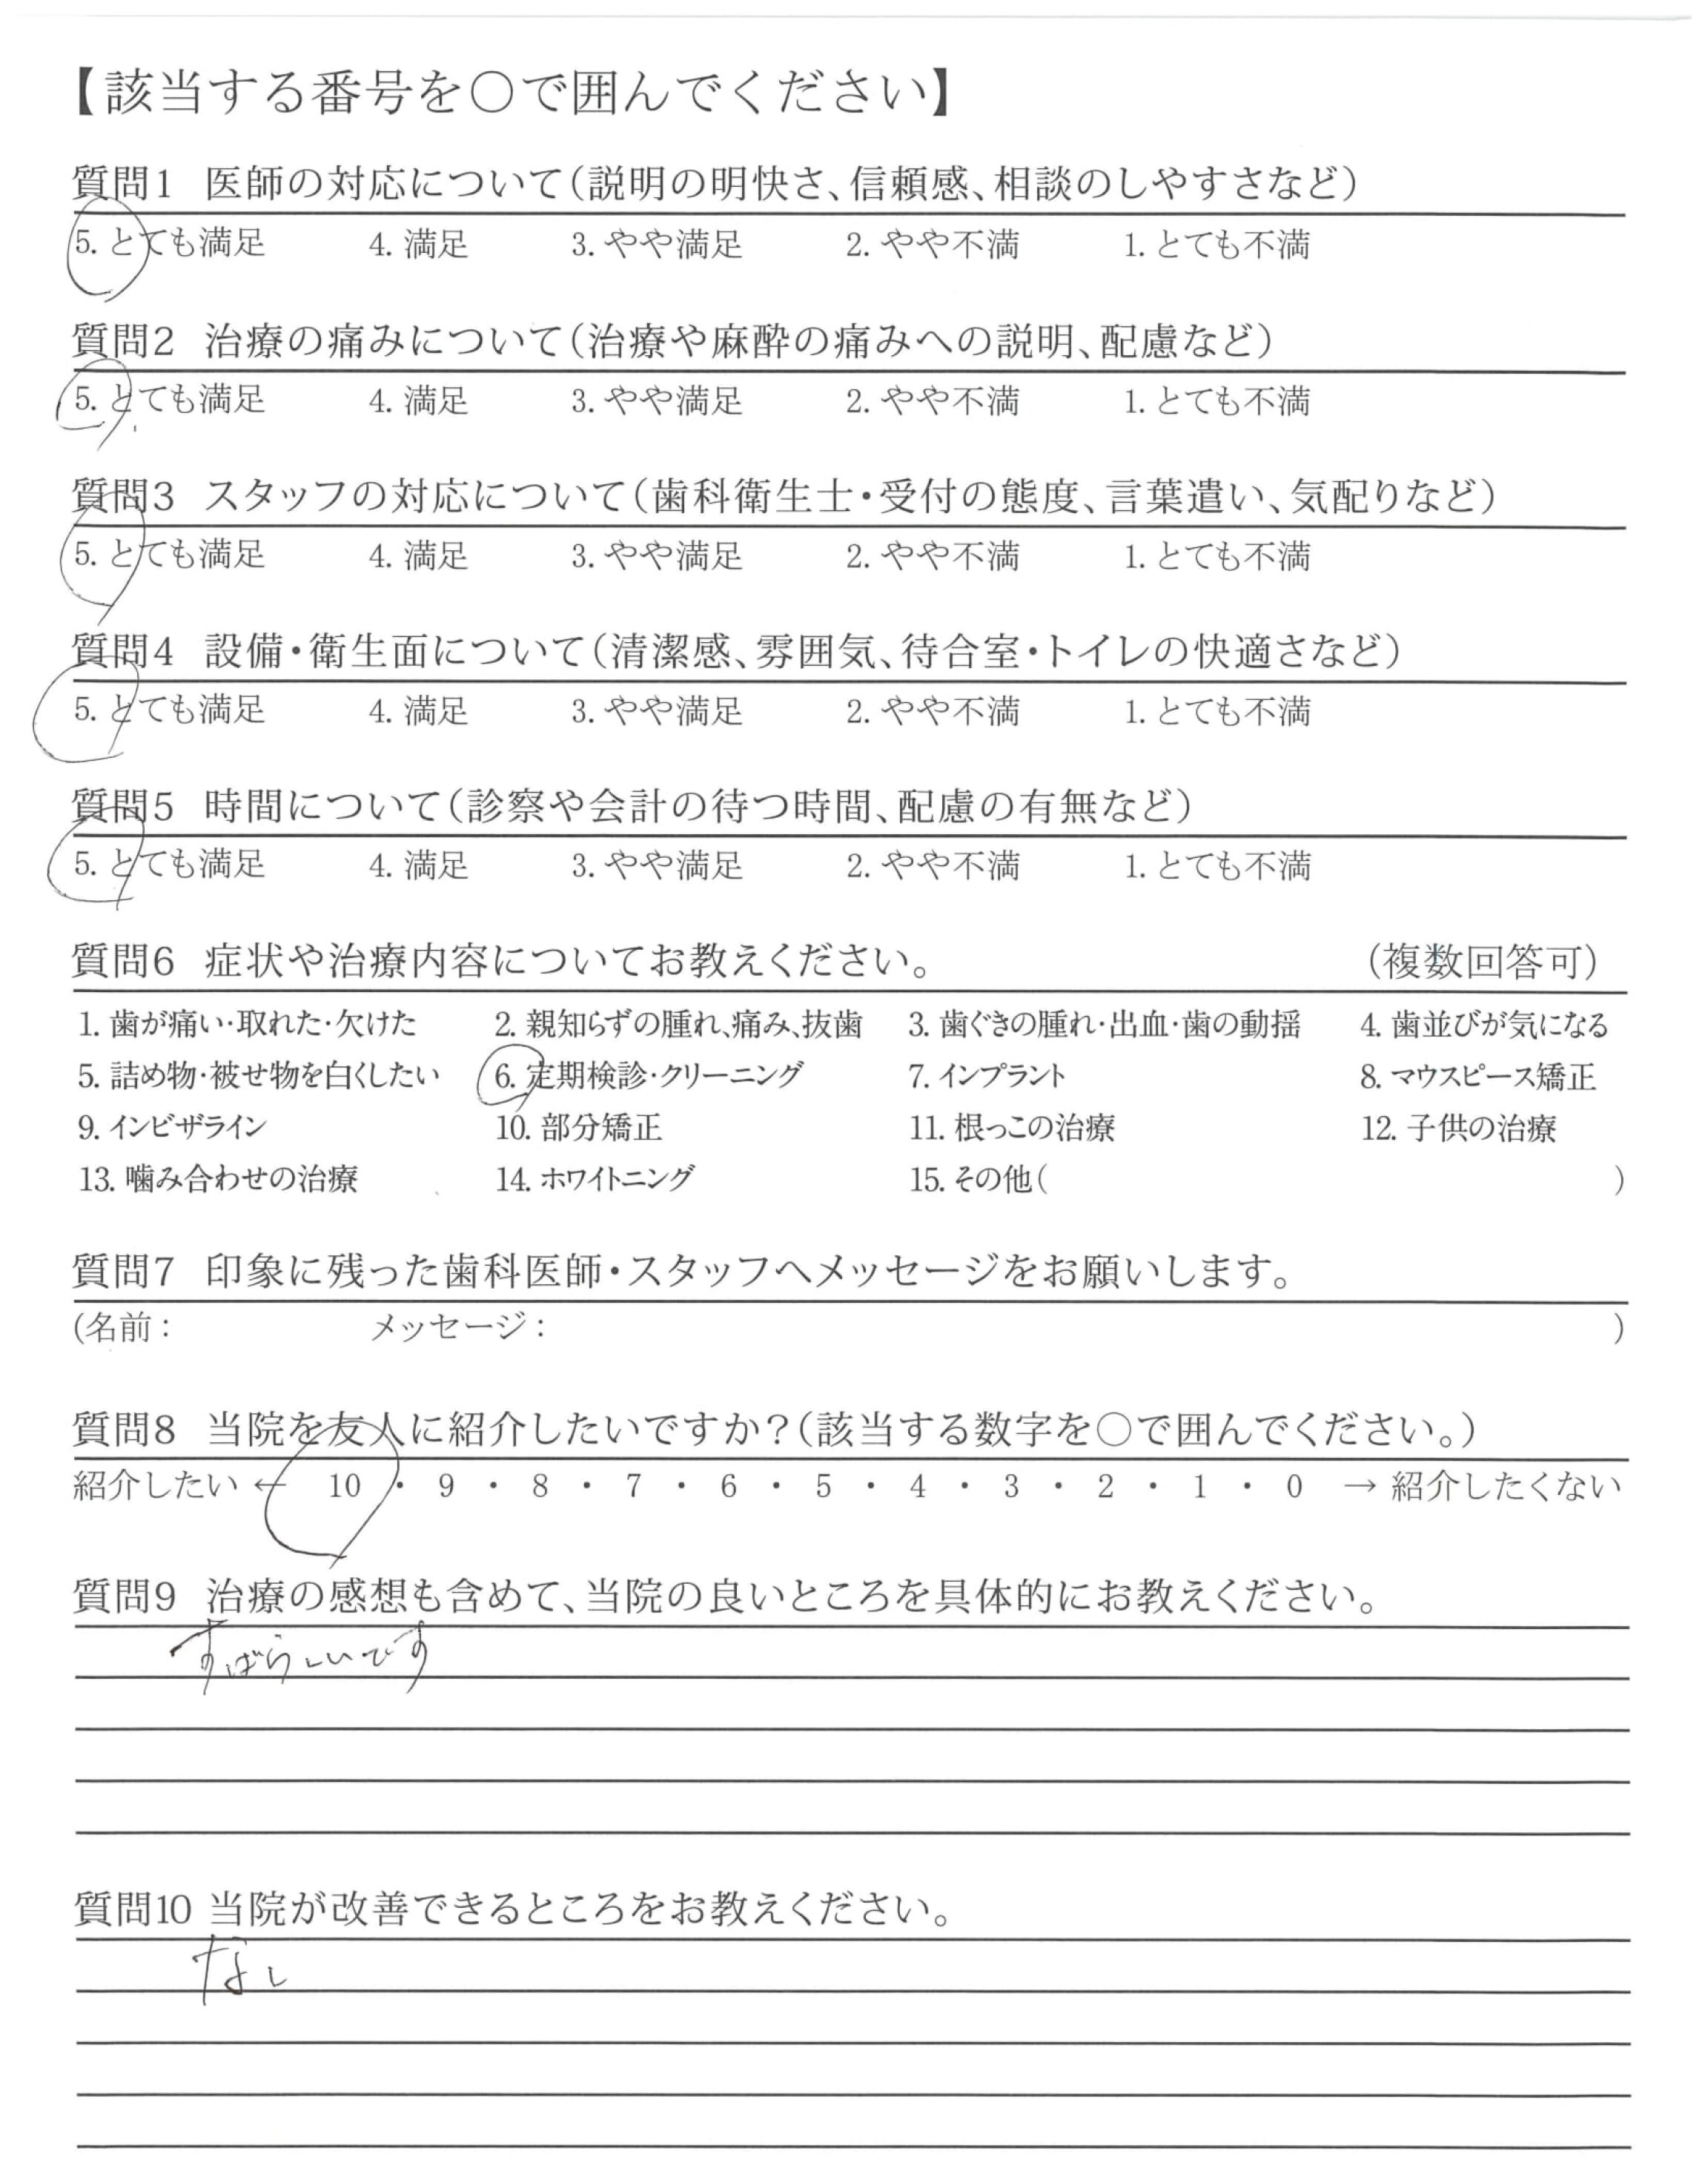 【該当する番号を○で囲んでください】
質問1 医師の対応について(説明の明快さ、信頼感、相談のしやすさなど)
5. とても満足 4. 満足 3. やや満足 2. やや不満 1. とても不満
質問2 治療の痛みについて(治療や麻酔の痛みへの説明、配慮など)
5. とても満足 4. 満足 3. やや満足 2. やや不満 1. とても不満
質問3 スタッフの対応について(歯科衛生士・受付の態度、言葉遣い、気配りなど)
5. とても満足 4. 満足 3. やや満足 2. やや不満 1. とても不満
質問4 設備・衛生面について(清潔感、雰囲気、待合室・トイレの快適さなど)
5. とても満足 4. 満足 3. やや満足 2. やや不満 1. とても不満
質問5 時間について(診察や会計の待つ時間、配慮の有無など)
5. とても満足 4. 満足 3. やや満足 2. やや不満 1. とても不満
質問6 症状や治療内容についてお教えください。 (複数回答可)
1. 歯が痛い・取れた・欠けた 2. 親知らずの腫れ、痛み、抜歯 3. 歯ぐきの腫れ・出血・歯の動揺 4. 歯並びが気になる
5. 詰め物・被せ物を白くしたい 6. 定期検診・クリーニング 7. インプラント 8. マウスピース矯正
9. インビザライン 10. 部分矯正 11. 根っこの治療 12. 子供の治療
13. 噛み合わせの治療 14. ホワイトニング 15. その他( )
質問7 印象に残った歯科医師・スタッフへメッセージをお願いします。
(名前: メッセージ: )
質問8 当院を友人に紹介したいですか?(該当する数字を○で囲んでください。)
紹介したい ← 10 ・ 9 ・ 8 ・ 7 ・ 6 ・ 5 ・ 4 ・ 3 ・ 2 ・ 1 ・ 0 → 紹介したくない
質問9 治療の感想も含めて、当院の良いところを具体的にお教えください。
すばらしいです
質問10 当院が改善できるところをお教えください。
なし